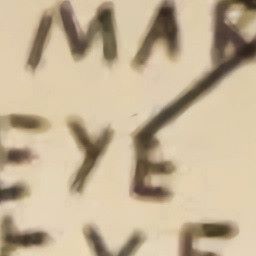 MAR
EYE
EYE